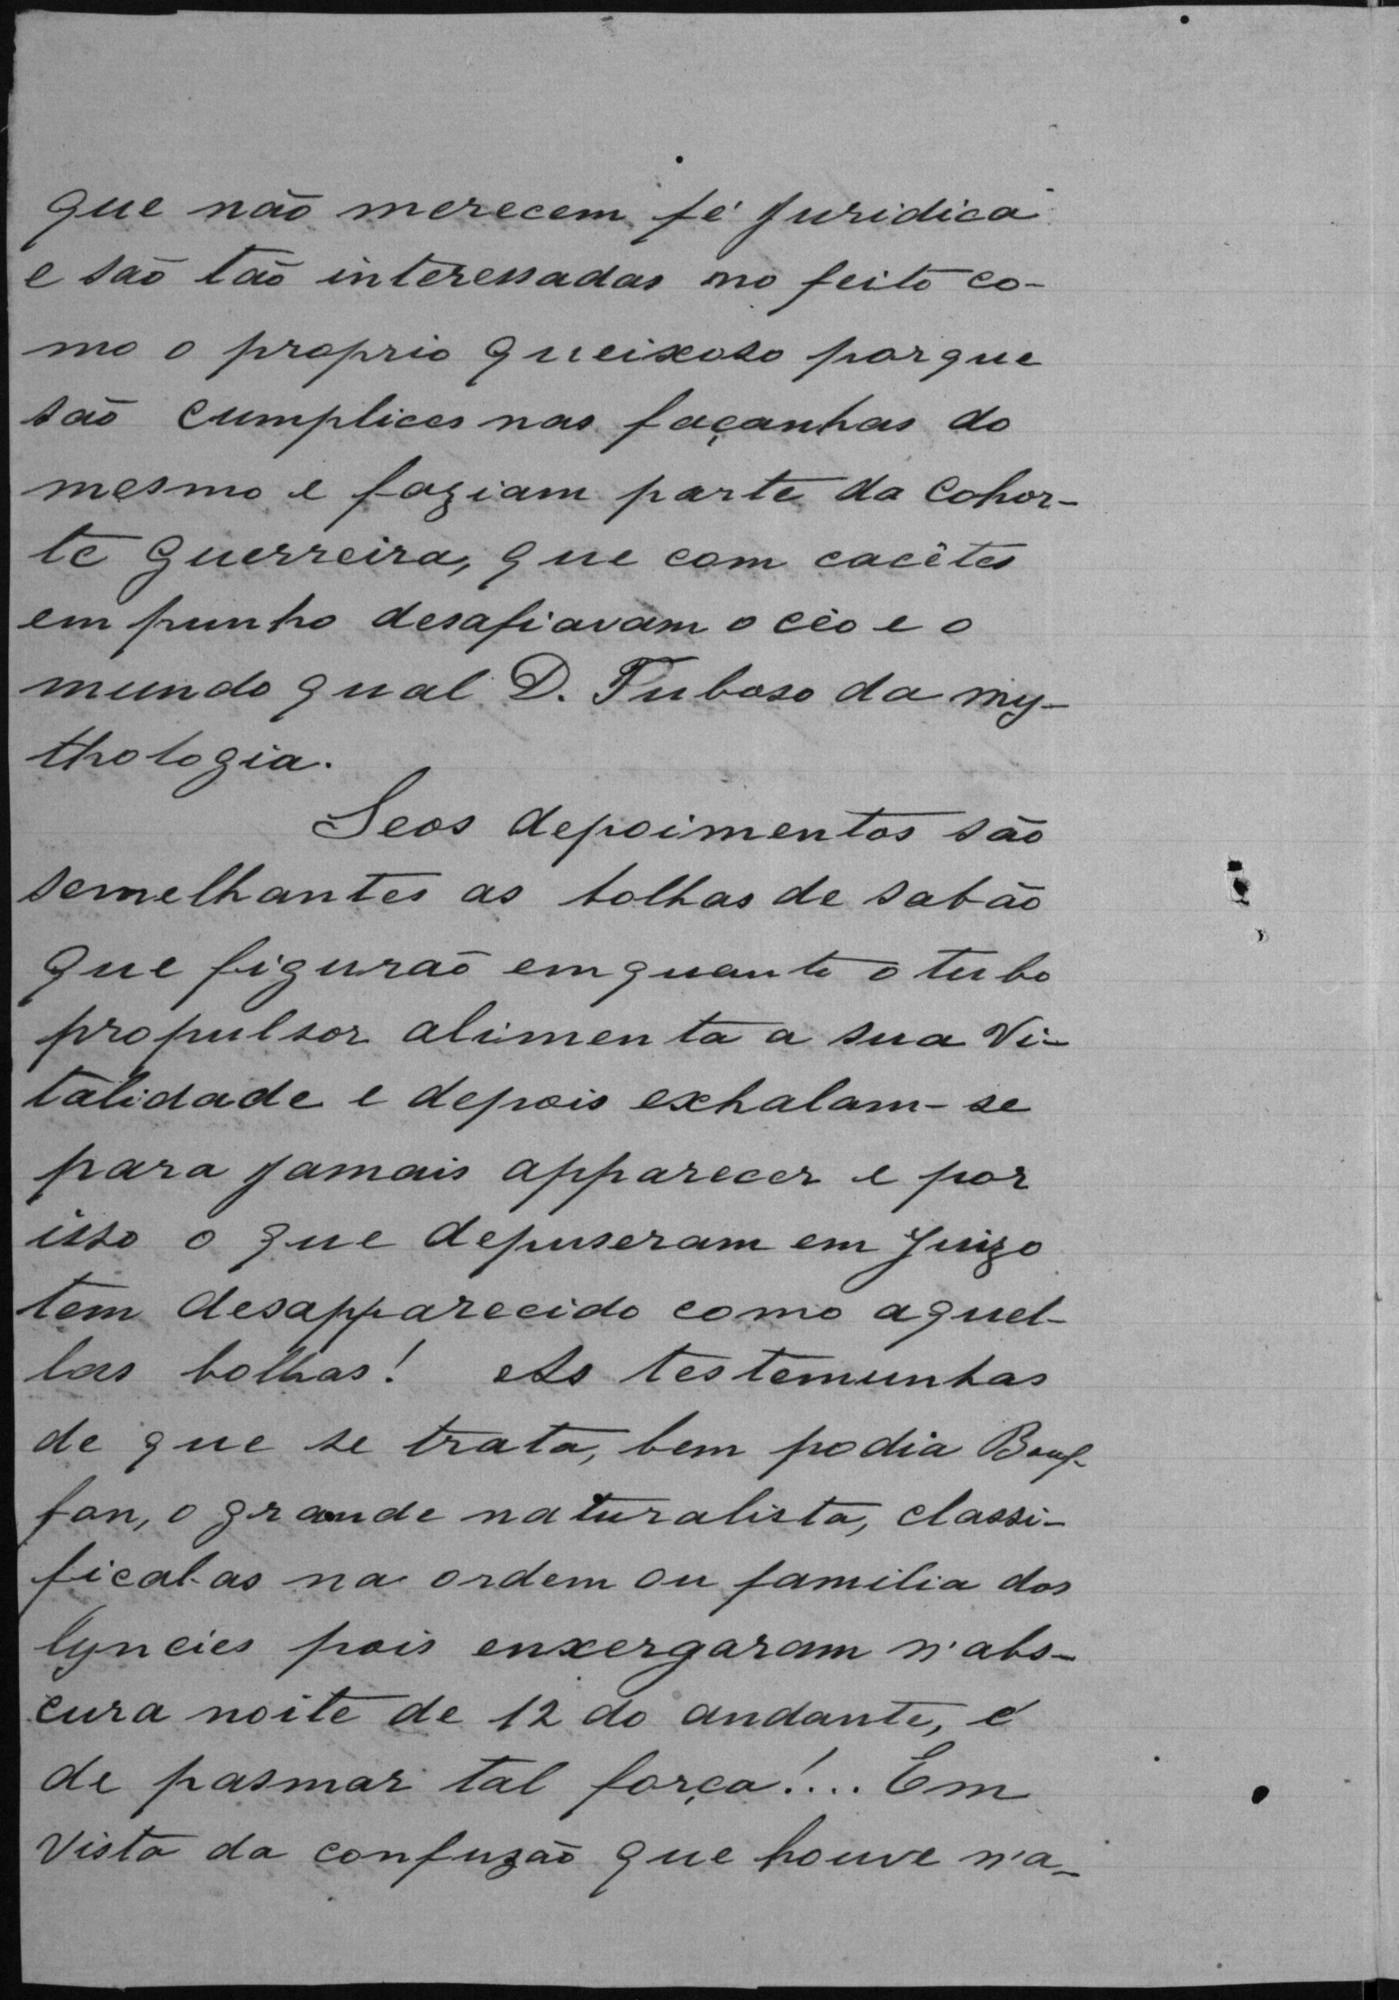 que não merecem fé juridica
e são tão interessadas no feito co-
mo o proprio queixoso porque
são cumplices nas façanhas do
mesmo e faziam parte da cohor-
te guerreira, que com cacêtes
em punho desafiavam o céo e o
mundo qual D. Tuboso da my-
thologia.
Seos depoimentos são
semelhantes as bolhas de sabão
que figurão emquanto o tubo
propulsor alimenta a sua vi-
talidade e depois exhalam-se
para jamais apparecer e por
isso o que depuseram em Juizo
tem desapparecido como aquel-
las bolhas! As testemunhas
de que se trata, bem podia Bouf-
fon, o grande naturalista, classi-
fical-as na ordem ou familia dos
lyncies pois enxergaram n'obs-
cura noite de 12 do andante, é
de pasmar tal força!... Em
vista da confuzão que houve n'a-